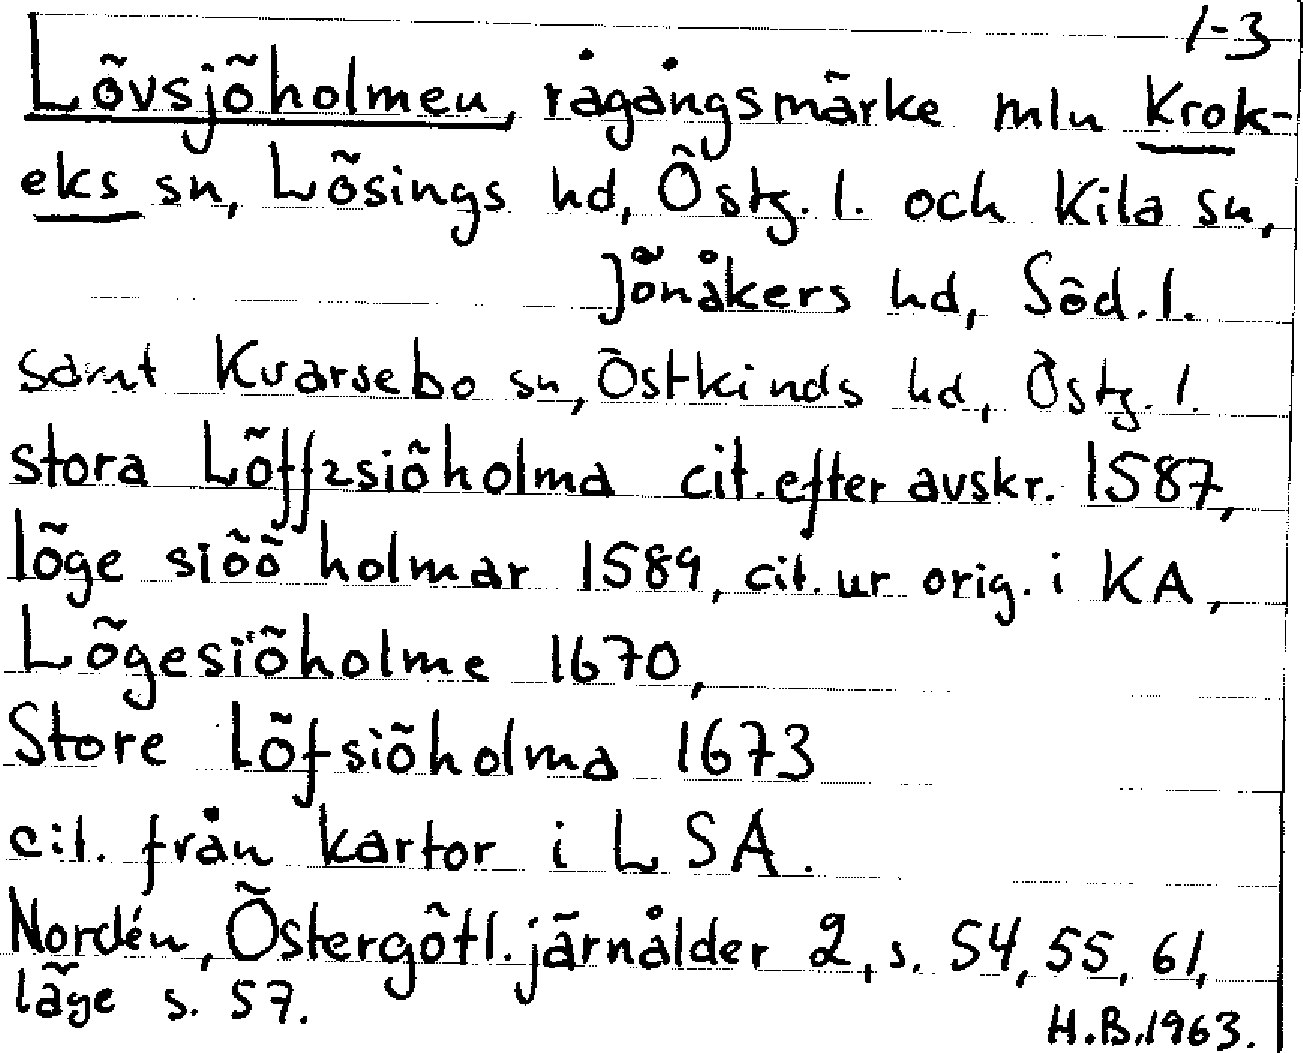 1-3
Lövsjöholmen, rågångsmärke mln Krok-
eks sn, Lösings hd, Östg. l. och Kila sn,
Jönåkers hd, Söd. l.
samt Kvarsebo sn, Östkinds hd, Östg. l.
stora Löffzsiöholma cit. efter avskr. 1587,
löge siöö holmar 1589, cit. ur orig. i KA,
Lögesiöholme 1670,
Store Löfsiöholma 1673
cit. från kartor i LSA.
Nordén, Östergötl. järnålder 2, s. 54, 55, 61,
läge s. 57.
H.B. 1963.